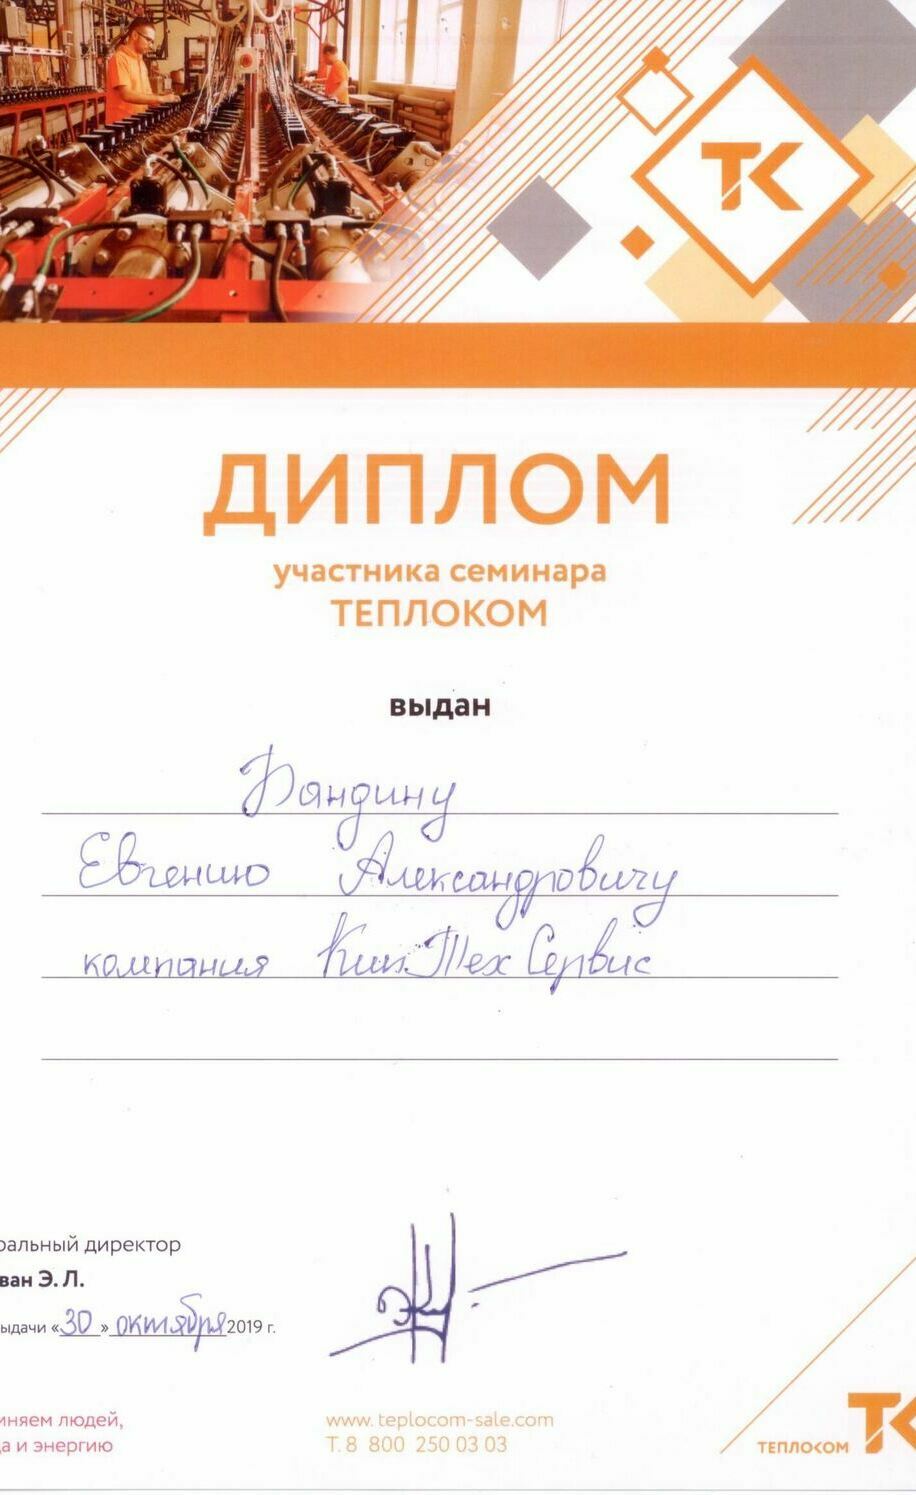 ТК
ДИПЛОМ
участника семинара
ТЕПЛОКОМ
выдан
Бандину
Евгению Александровичу
компания КипТехСервис
ральный директор
ван Э. Л.
ыдачи «30» октября 2019 г.
иняем людей,
а и энергию
www.teplocom-sale.com
Т. 8 800 250 03 03
ТЕПЛОКОМ